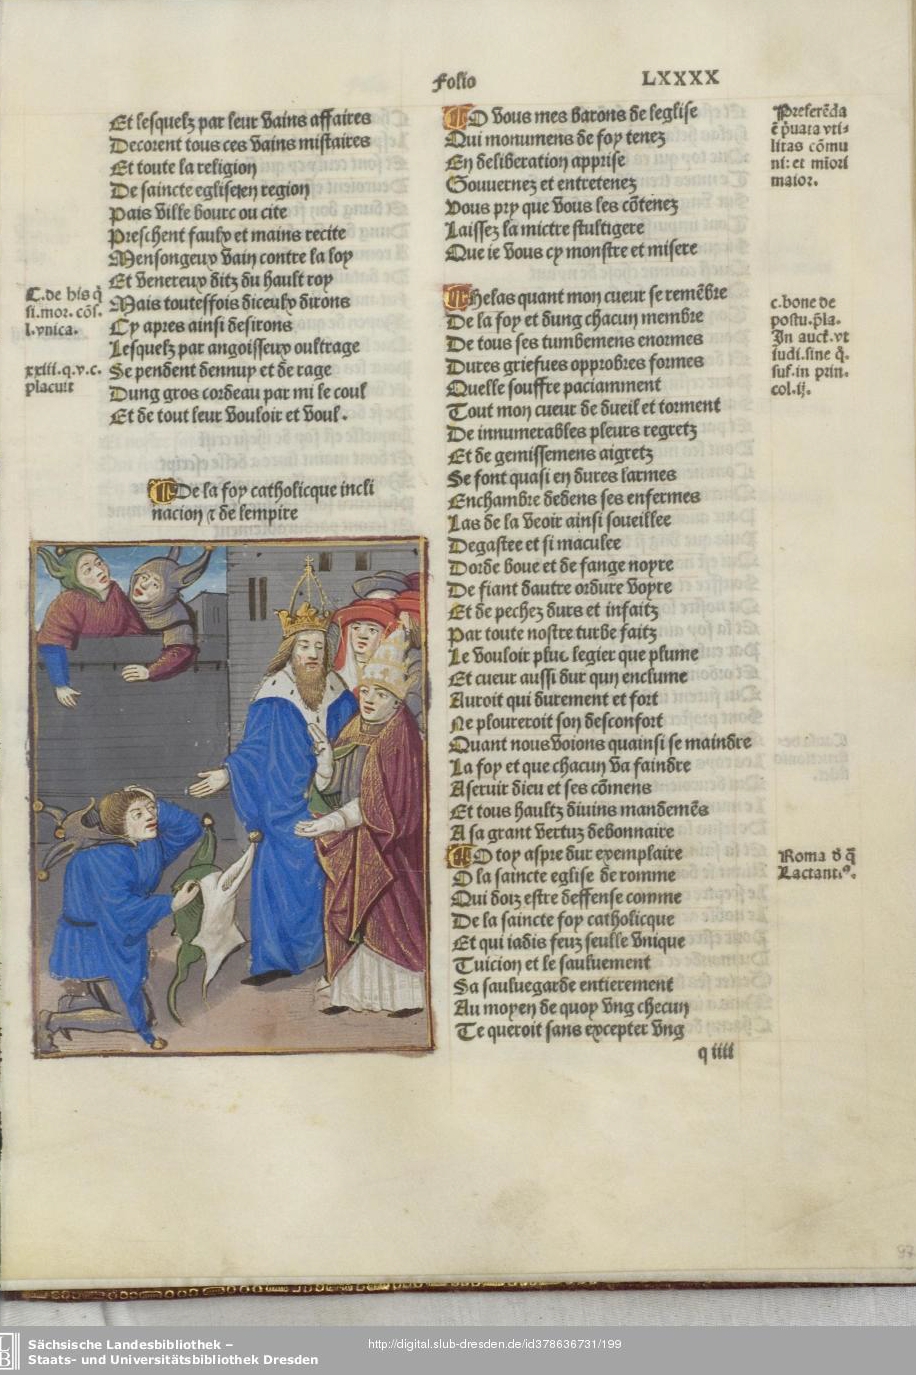 Folio LXXXX
Et lesquelz par leur vains affaires
Decorent tous ces vains mistaires
Et toute la religion
De saincte eglise en region
Pais ville bourc ou cite
Preschent faulx et mains recite
Mensongeux vain contre la loy
Et venereux ditz du hault roy
Mais touteffois diceulx dirons
Cy apres ainsi desirons
Lesquelz par angoisseux oultrage
Se pendent dennuy et de rage
Dung gros cordeau par mi le coul
Et de tout leur vouloir et voul.
C. de his q̄
si.mor. cōs.
l.vnica.
xxiii.q.v.c.
placuit
De la foy catholicque incli
nacion ⁊ de lempire
O vous mes barons de leglise
Qui monumens de foy tenez
En deliberation apprise
Gouuernez et entretenez
Vous pry que vous les cōtenez
Laissez la mictre stultigere
Que ie vous cy monstre et misere
Helas quant mon cueur se remēbre
De la foy et dung chacun membre
De tous ses tumbemens enormes
Dures griefues opprobres formes
Quelle souffre paciamment
Tout mon cueur de dueil et torment
De innumerables pleurs regretz
Et de gemissemens aigretz
Se font quasi en dures larmes
Enchambre dedens ses enfermes
Las de la veoir ainsi soueillee
Degastee et si maculee
Dorde boue et de fange noyre
De fiant dautre ordure voyre
Et de pechez durs et infaitz
Par toute nostre turbe faitz
Le vouloir plus legier que plume
Et cueur aussi dur qun enclume
Auroit qui durement et fort
Ne ploureroit son desconfort
Quant nous voions quainsi se maindre
La foy et que chacun va faindre
A seruir dieu et ses cōmens
Et tous haultz diuins mandemēs
A sa grant vertuz debonnaire
O toy aspre dur exemplaire
O la saincte eglise de romme
Qui doiz estre deffense comme
De la saincte foy catholicque
Et qui iadis feuz seulle vnique
Tuicion et le sauluement
Sa sauluegarde entierement
Au moyen de quoy vng checun
Te queroit sans excepter vng
q iiii
Preferēda
ē p̄uata vti-
litas cōmu
ni: et miori
maior.
c.bone de
postu.p̄la.
In auct. vt
iudi. sine q̄.
suf. in prin.
col.ij.
Roma
Lactanti⁹.
Sächsische Landesbibliothek –
Staats- und Universitätsbibliothek Dresden
http://digital.slub-dresden.de/id378636731/199